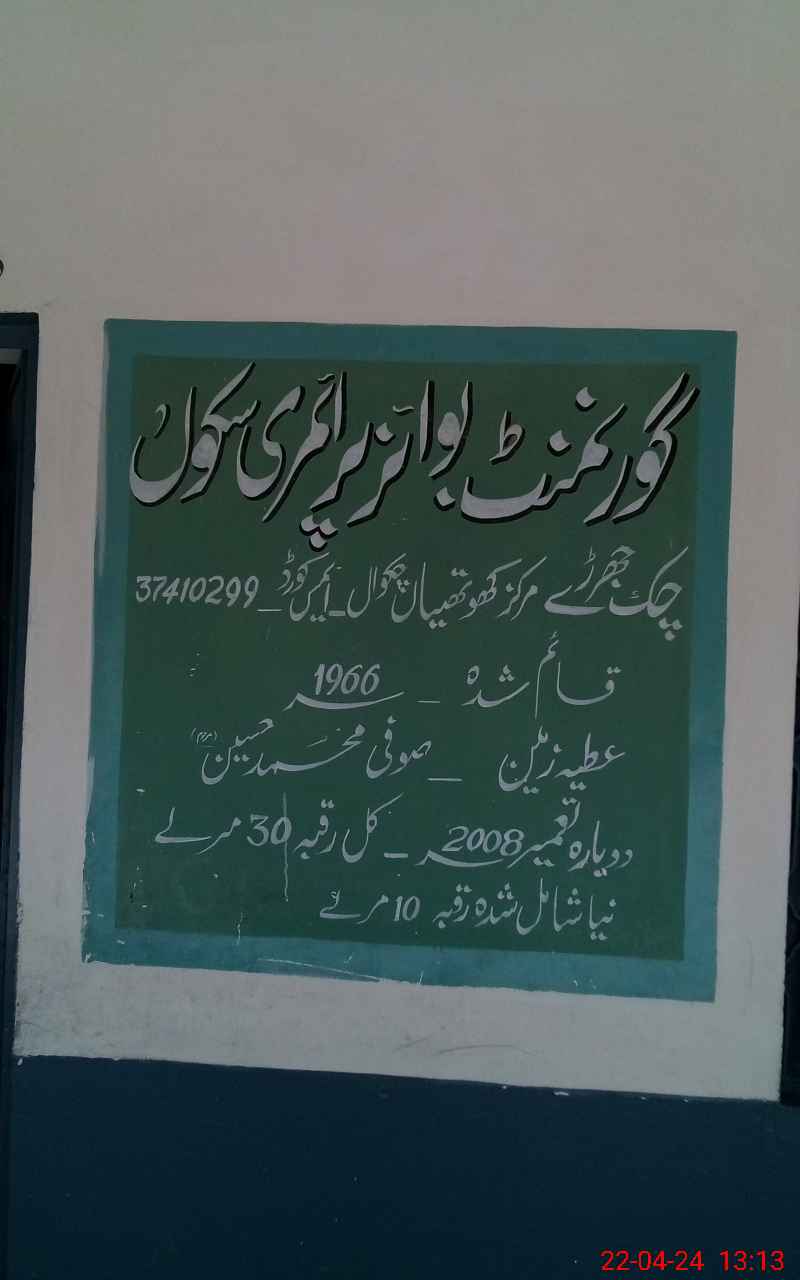 گورنمنٹ بوائز پرائمری سکول
چک جھرڑے مرکز کھوتھیاں چکوال۔ایمس کورڈ۔37410299
قائم شدہ ۔ 1966ء
عطیہ زمین ۔ صوفی محمد حسین (مرحوم)
دوبارہ تعمیر 2008ء ۔ کل رقبہ 30 مرلے
نیا شامل شدہ رقبہ 10 مرلے
22-04-24 13:13